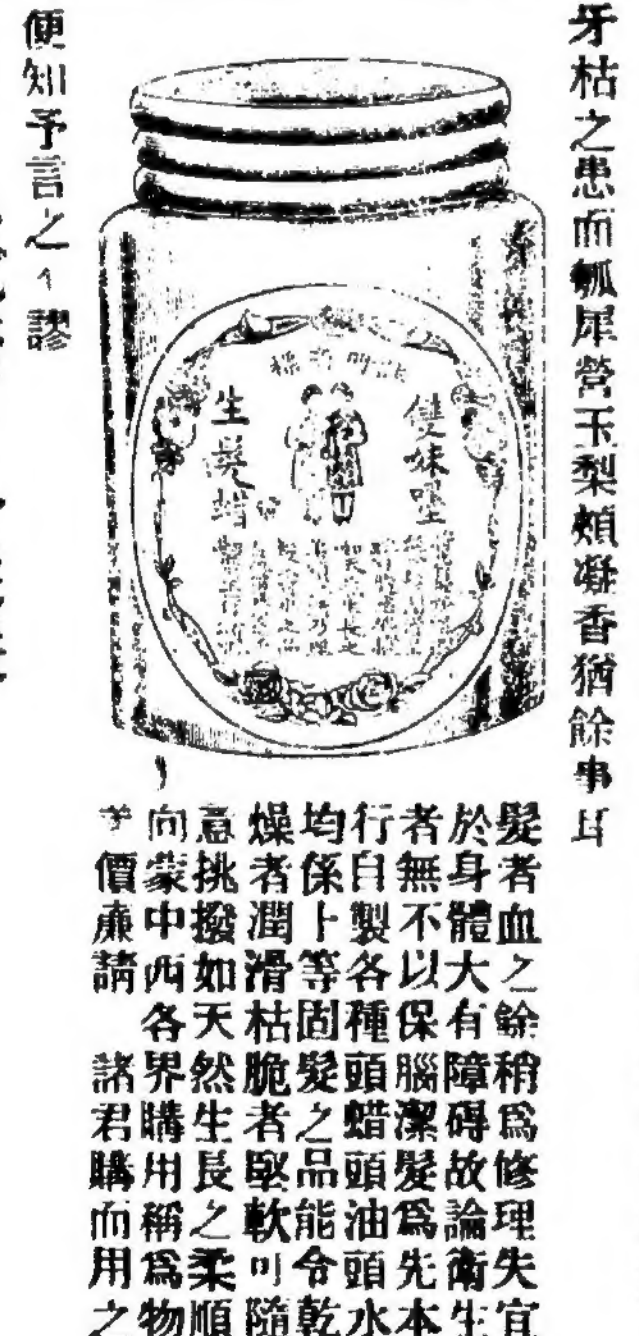 牙枯之患而瓠犀營玉梨頰凝香猶餘事耳
雙妹嘜
生髮蜡
髮者血之餘稍爲修理失宜
於身體大有障碍故論衛生
者無不以保腦潔髮爲先本
行自製各種頭蜡頭油頭水
均係上等固髮之品能令乾
燥者潤滑枯脆者堅軟可隨
意挑撥如天然生長之柔順
向蒙中西各界購用稱爲物
美價廉請 諸君購而用之
便知予言之不謬